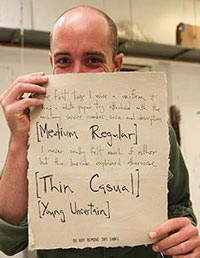 The first time I wore a uniform it
had a white paper tag attached with the
military service number, size and description
[Medium Regular]
I never really felt much of either
but the inside explained otherwise
[Thin Casual]
[Young Uncertain]
DO NOT REMOVE THIS LABEL